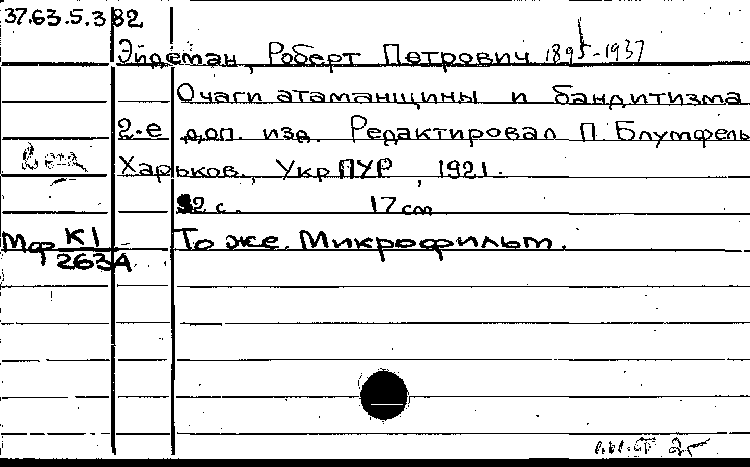 37.63.5.382
Эйдеман, Роберт Петрович 1895-1937
Очаги атаманщины и бандитизма
2-е доп. изд. Редактировал П. Блумфель
Харьков., УкрПУР, 1921.
52 с. 17 cm
Мф К1 То же. Микрофильм.
263А